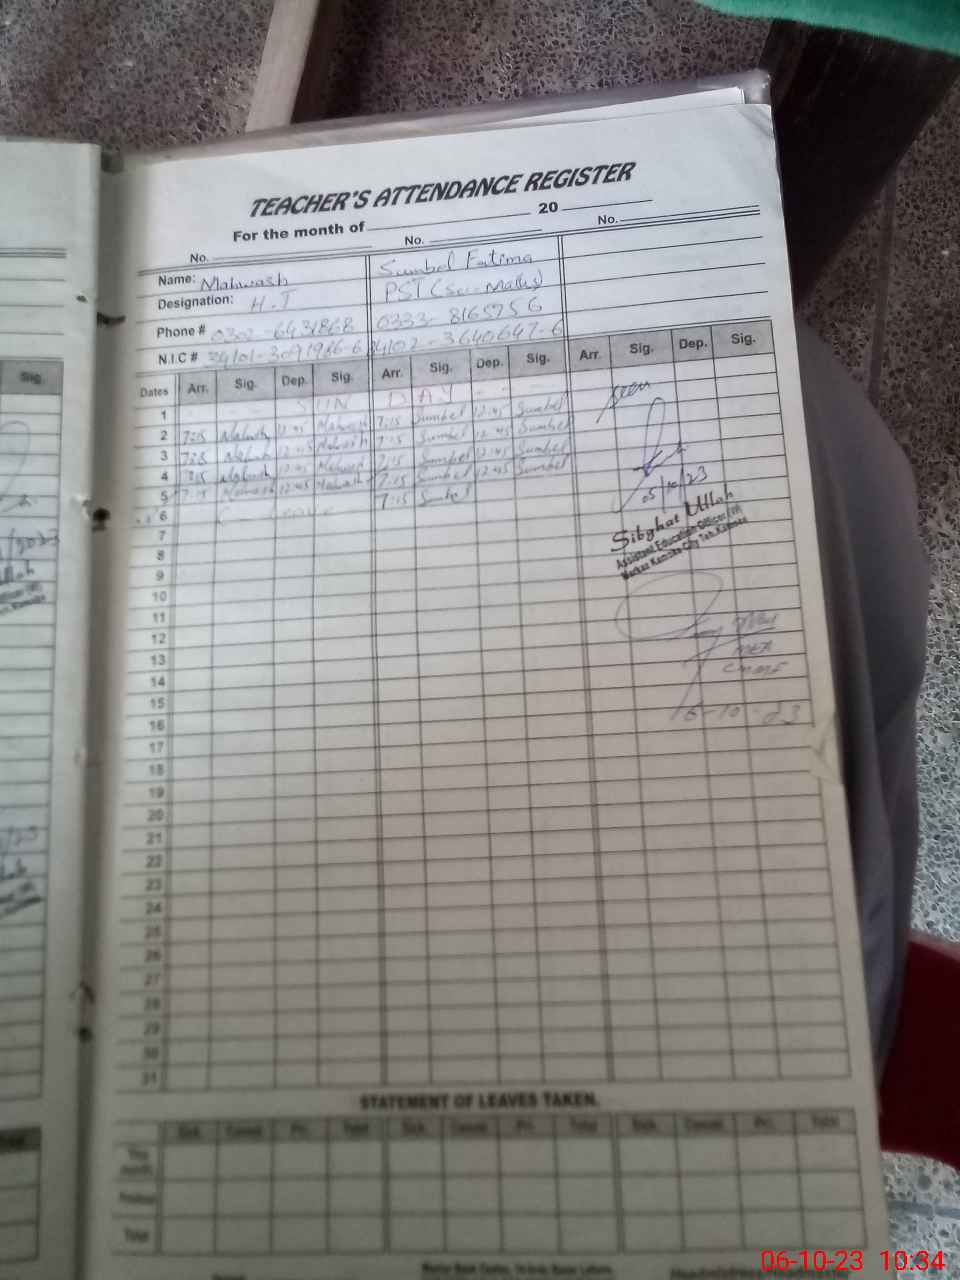 TEACHER'S ATTENDANCE REGISTER
For the month of 20
No. No. No.
Name: Mahwash Sumbel Fatima
Designation: H.T PST (Sci-Maths)
Phone # 0302-6431868 0333-8165756
N.I.C # 34101-3091986-6 34102-3640647-6
Dates Arr. Sig. Dep. Sig. Arr. Sig. Dep. Sig. Arr. Sig. Dep. Sig.
1 SUN DAY
2 7:15 Mahwash 12:45 Mahwash 7:15 Sumbel 12:45 Sumbel
3 7:15 Mahwash 12:45 Mahwash 7:15 Sumbel 12:45 Sumbel
4 7:15 Mahwash 12:45 Mahwash 7:15 Sumbel 12:45 Sumbel
5 7:15 Mahwash 12:45 Mahwash 7:15 Sumbel 12:45 Sumbel
6 C - Leave 7:15 Sumbel
7
8
9
10
11
12
13
14
15
16
17
18
19
20
21
22
23
24
25
26
27
28
29
30
31
Seen
05/10/23
Sibghat Ullah
Assistant Education Officer (W)
Markaz Kamoke City Teh. Kamoke
MEA
CMMF
6-10-23
STATEMENT OF LEAVES TAKEN.
Sick. Casual. Pri. Total Sick. Casual. Pri. Total Sick. Casual. Pri. Total
This month
Previous
Total
Sig.
06-10-23 10:34